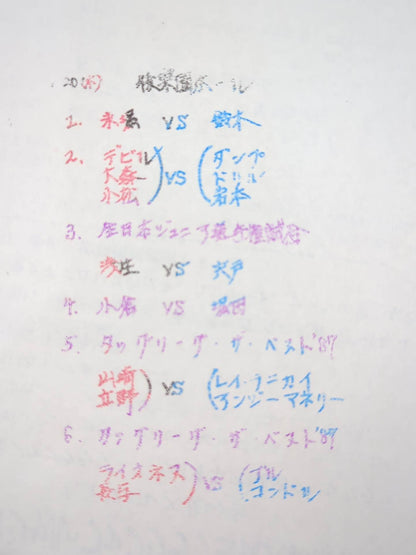 20(木) 後楽園ホール
1. 永堀 VS 鈴木
2. デビル ダンプ
大森 VS ドリル
小松 岩本
3. 全日本ジュニア選手権試合
浅生 VS 宍戸
4. 小倉 VS 堀田
5. タッグリーグ・ザ・ベスト'87
山崎 VS レイ・ラニカイ
立野 アンジーマネリー
6. タッグリーグ・ザ・ベスト'87
ライオネス VS ブル
長与 コンドル